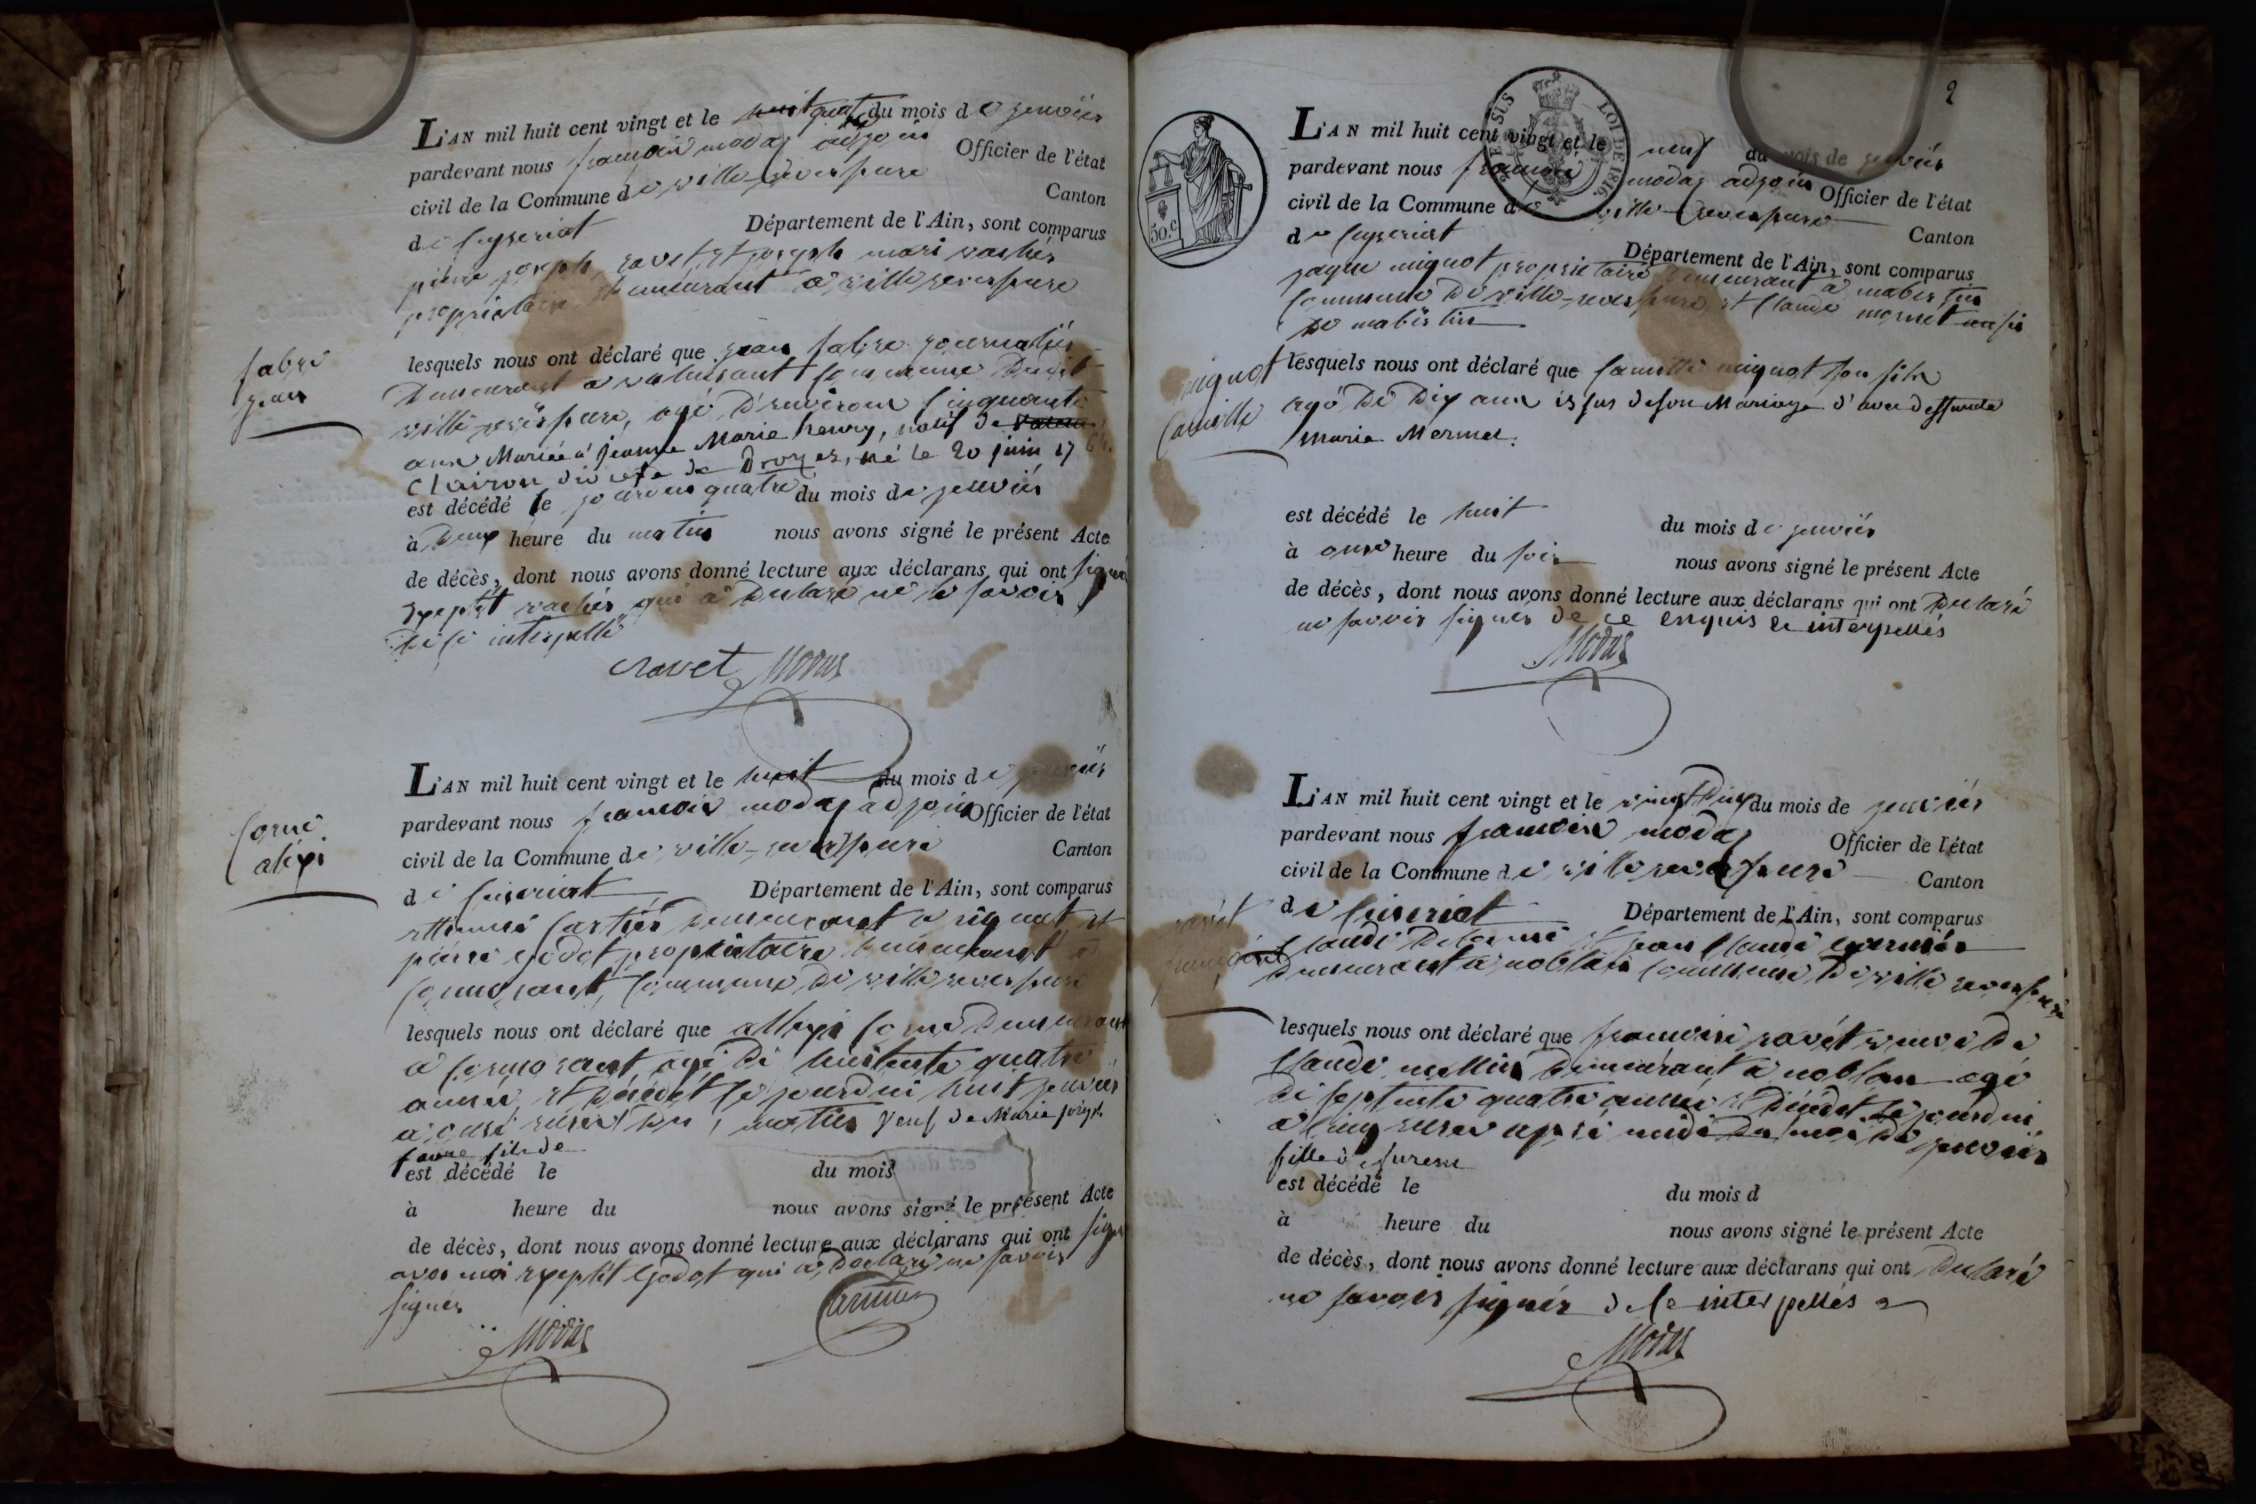 fabre
jean
L'AN mil huit cent vingt et le quatre du mois de jenvier
pardevant nous françois modas adjoin Officier de l'état
civil de la Commune de ville-reversure Canton
de Ceyseriat Département de l'Ain, sont comparus
pierre joseph ravet et joseph mari vachér
proprietaire demeurant a ville reversure
lesquels nous ont déclaré que jean fabre journalier
demeurant a commune dudit
ville reversure, agé d'environ cinquante
ans Mariée a Jeanne Marie henry, natif de
Clairon diocèse de Drozer, né le 20 juin 17
est décédé le jourdui quatre du mois de jenvier
à deux heure du matin nous avons signé le présent Acte
de décès, dont nous avons donné lecture aux déclarans qui ont signé
exeptét vachér qui a declaré ne le savoir
de ce interpellé
ravet Modas
Corne
aléxi
L'AN mil huit cent vingt et le huit du mois de jenvier
pardevant nous francois modas adjoin Officier de l'état
civil de la Commune de ville-reversure Canton
de Ceiseriat Département de l'Ain, sont comparus
ettienne Cartier demeurant a et
pierre godot proprietaire demeurant a
Cormorant, Commune de ville reversure
lesquels nous ont déclaré que allexi Corne demeurant
a Cormorant agé de quatre
année et décédét le jourdui huit jenvier
a onse heures du matin veuf de Marie joseph
favre fils de
est décédé le du mois
à heure du nous avons signé le présent Acte
de décès, dont nous avons donné lecture aux déclarans qui ont signé
avec moi exeptét Godot qui a declaré ne savoir
signer
Modas
2
RE SUS
LOI DE 1816.
50.c
mignot
Camille
L'AN mil huit cent vingt et le neuf du mois de jenvier
pardevant nous francois modas adjoin Officier de l'état
civil de la Commune de ville reversure Canton
de Ceyseriat Département de l'Ain, sont comparus
jaque mignot proprietaire demeurant a
Commune de ville-reversure et Claude mornet aussi
lesquels nous ont déclaré que Camille mignot son fils
agé de dix ans issus de son Mariage d'avec deffunte
Marie Mermet.
est décédé le huit du mois de jenvier
à onse heure du soir nous avons signé le présent Acte
de décès, dont nous avons donné lecture aux déclarans qui ont declaré
ne savoir signer de ce enquis et interpellés
Modas
ravét
françoise
L'AN mil huit cent vingt et le vingt deux du mois de jenvier
pardevant nous francois modas Officier de l'état
civil de la Commune de ville reversure Canton
de Ceiseriat Département de l'Ain, sont comparus
Claude et jean Claude
demeurant a noblan Commune de ville reversure
lesquels nous ont déclaré que francoise ravét veuve de
Claude demeurant a noblan agé
de septente quatre année et décédét le jourdui
a cinq heures après midi du moi de jenvier
fille
est décédé le du mois d
à heure du nous avons signé le présent Acte
de décès, dont nous avons donné lecture aux déclarans qui ont declaré
ne savoir signér de ce interpellés
Modas